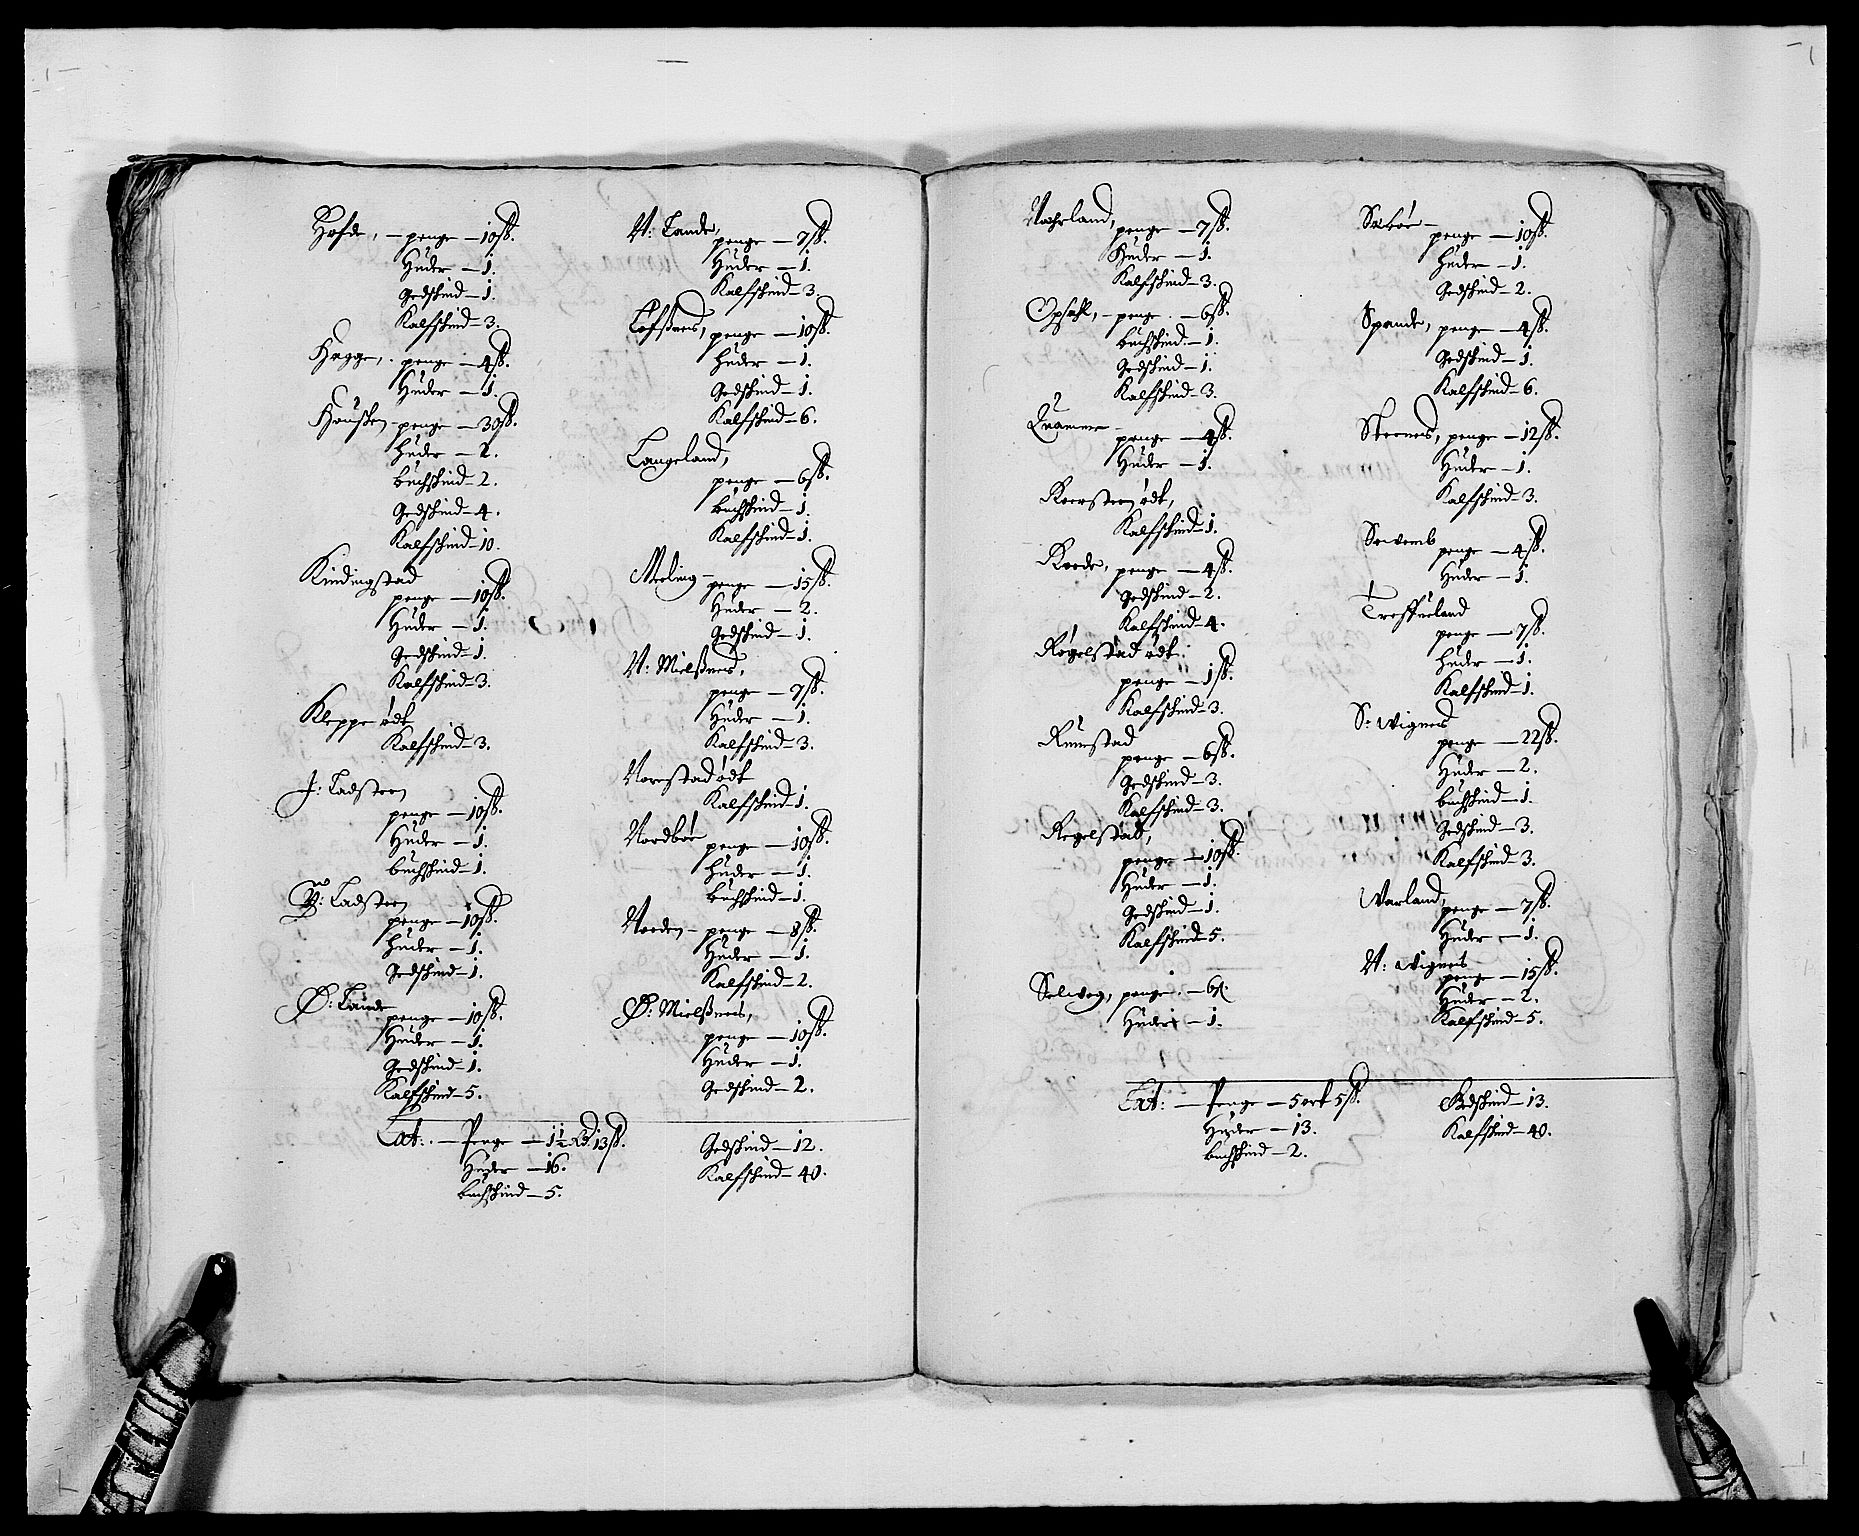 Hofde, – penge – 10 ß.
Huder – 1.
Gedskind – 1.
Kalfskind – 3.
Hagge, . penge – 4 ß.
Huder – 1.
Housken – penge – 30 ß.
Huder – 2.
buchskind – 2.
Gedskind – 4.
Kalfskind – 10.
Kindingstad
penge – 10 ß.
Huder – 1.
Gedskind – 1.
Kalfskind – 3.
Kleppe ödt
Kalfskind – 3.
J: Ladsteen
penge – 10 ß.
Huder – 1.
buchskind – 1.
Ladsteen
penge – 10 ß.
huder – 1.
Gedskind – 1.
Ø: Lunde
penge – 10 ß.
Huder – 1.
Gedskind – 1.
Kalfskind – 5.
Lat: – Penge – 1½ Rd 13 ß.
Huder – 16.
buchskind – 5.
N: Lande,
penge – 7 ß.
Huder – 1.
Kalfskind – 3
Lofsnes, penge – 10 ß.
huder – 1.
Gedskind – 1.
Kalfskind – 6.
Langeland,
penge – 6 ß.
buchskind – 1.
Kalfskind – 1.
Meling –
penge – 15 ß.
Huder – 2.
Gedskind – 1.
N: Mielsnes,
penge – 7 ß.
Huder – 1.
Kalfskind – 3.
Norestad ödt
Kalfskind 1.
Nordbøe
penge – 10 ß.
huder – 1.
Buchskind – 1.
Norden – penge – 8 ß.
Huder – 1.
Kalfskind – 2.
Ø: Mielsnes,
penge – 10 ß.
Huder – 1.
Gedskind – 2.
Gedskind – 12.
Kalfskind – 40.
Nahrland,
penge – 7 ß.
Huder – 1.
Kalfskind – 3.
Opsahl, – penge . – 6 ß.
Buchskind – 1.
Gedskind – 1.
Kalfskind – 3.
Quamme –
penge – 4 ß.
Huder – 1.
ödt,
Kalfskind – 1.
penge – 4 ß.
Gedskind – 2.
Kalfskind – 4.
Røgelstad ødt.
penge – 1 ß.
Kalfskind – 3.
Rimestad
penge – 6 ß.
Gedskind – 3.
Kalfskind – 3.
Regelstad,
penge – 10 ß.
Huder – 1.
Gedskind – 1.
Kalfskind – 5.
Selveg, penge . – 6 ß.
Huder – 1.
Lat: – Penge – 5 ort 5 ß.
Huder – 13.
buchskind – 2.
Sørbøe –
penge – 10 ß.
huder – 1.
Gedskind – 2.
Spande, penge – 4 ß.
Gedskind – 1.
Kalfskind – 6.
penge – 12 ß.
Huder – 1.
Kalfskind – 3.
penge – 4 ß.
Huder – 1.
penge – 7 ß.
huder – 1.
Kalfskind – 1.
S: Wignes
penge – 22 ß.
Huder – 2.
buchskind – 1.
Gedskind – 3.
Kalfskind – 3.
Warland,
penge – 7 ß.
Huder – 1.
N: Wignes
penge – 15 ß.
Huder – 2.
Kalfskind – 5.
Gedskind – 13.
Kalfskind – 40.